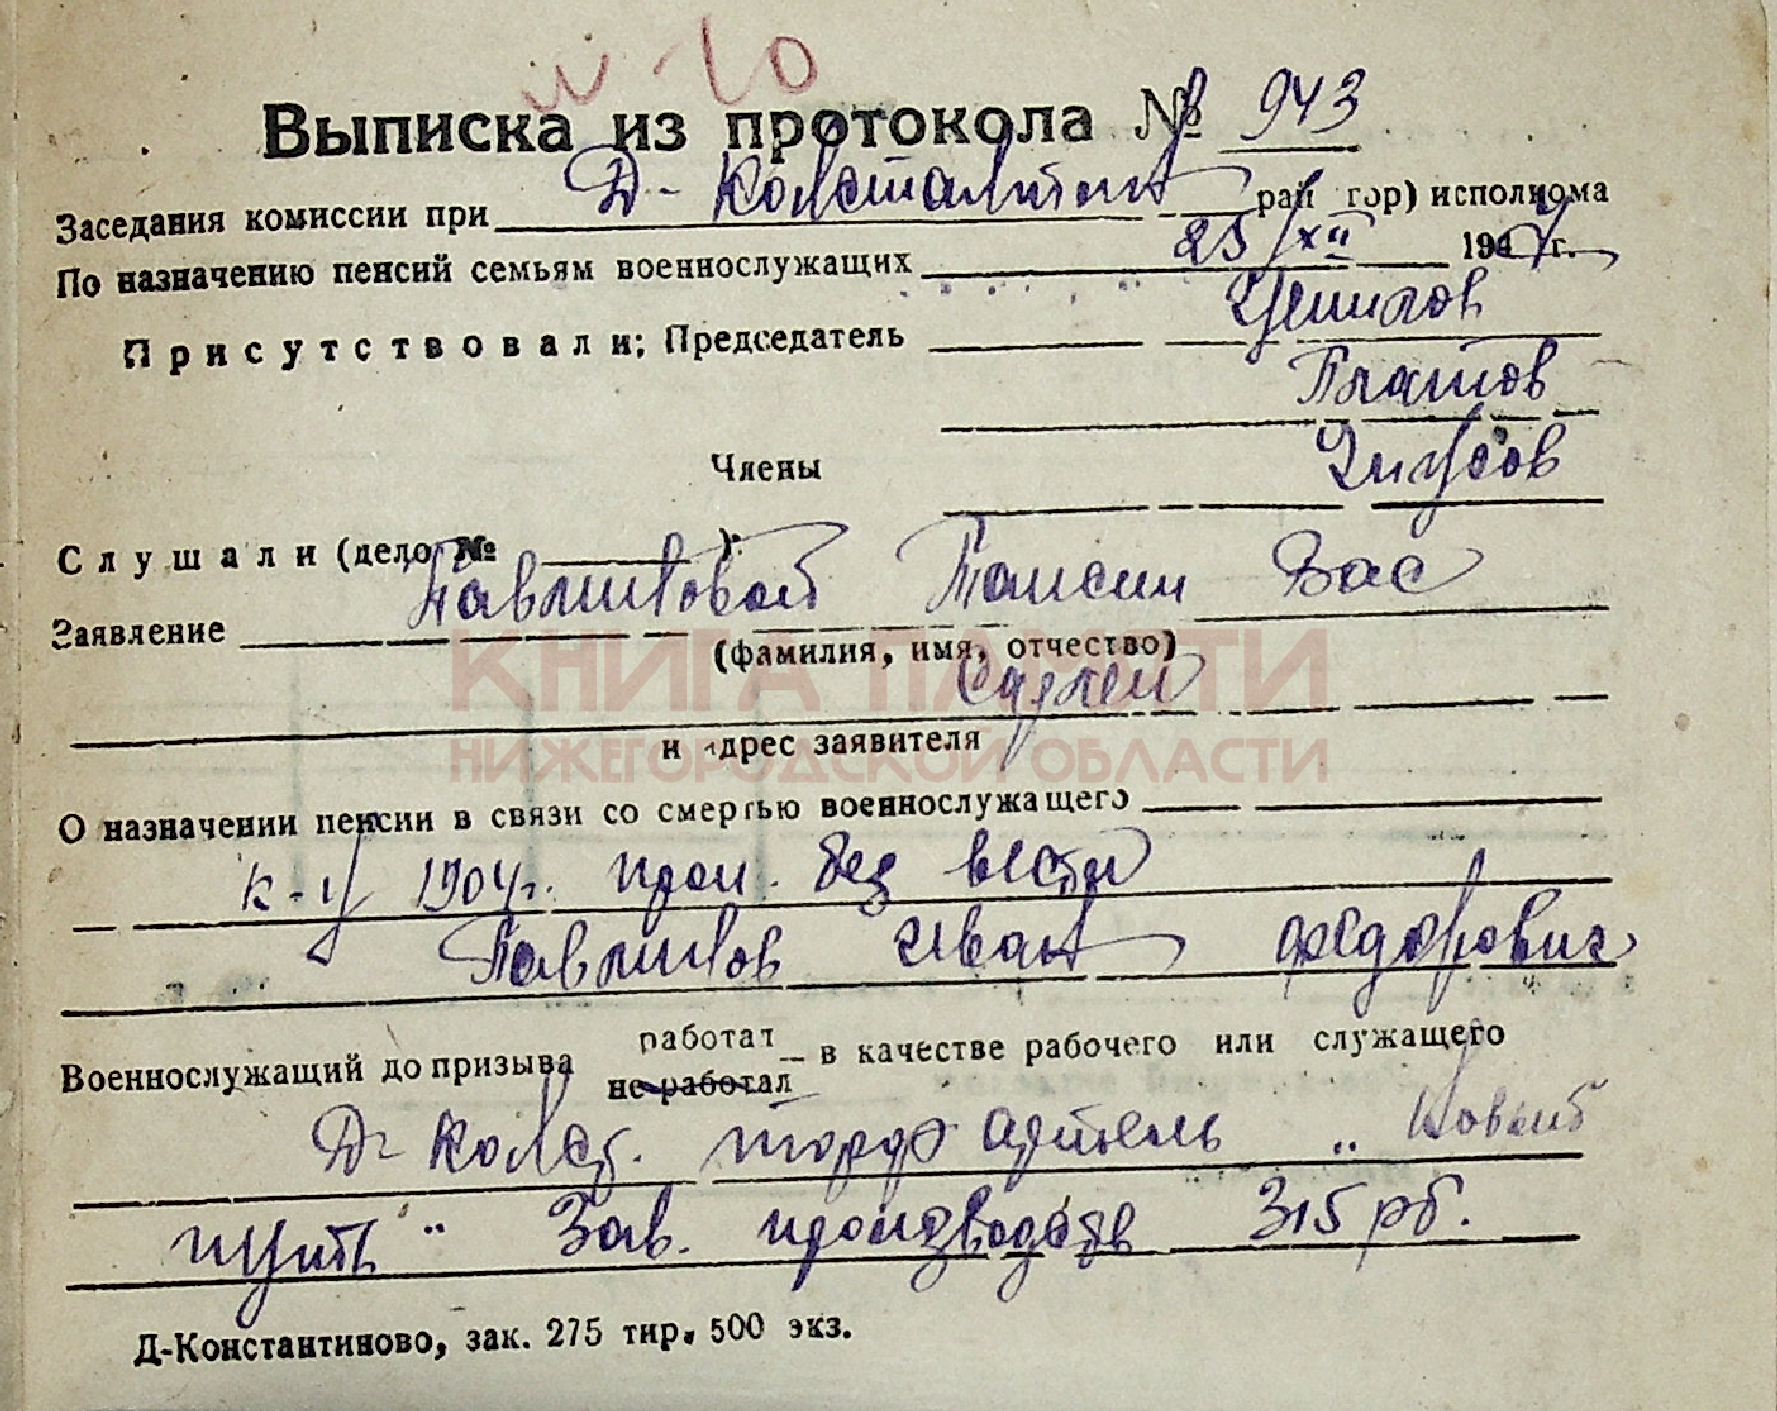 и-10
Выписка из протокола № 943
Заседания комиссии при Д-Константин рай гор) исполкома
По назначению пенсий семьям военнослужащих 25/XII 1947 г.
Присутствовали; Председатель
Платов
Члены
Слушали (дело № ):
Заявление Павликовой Таисии Вас
(фамилия, имя, отчество)
КНИГА ПАМЯТИ
и адрес заявителя
НИЖЕГОРОДСКОЙ ОБЛАСТИ
О назначении пенсии в связи со смертью военнослужащего
к-ц 1904г. проп. без вести
Павликов Иван Федорович
работат
Военнослужащий до призыва в качестве рабочего или служащего
не работал
Д-Конст. торф артель „Новый
путь" Зав. производств 315 рб.
Д-Константиново, зак. 275 тир. 500 экз.